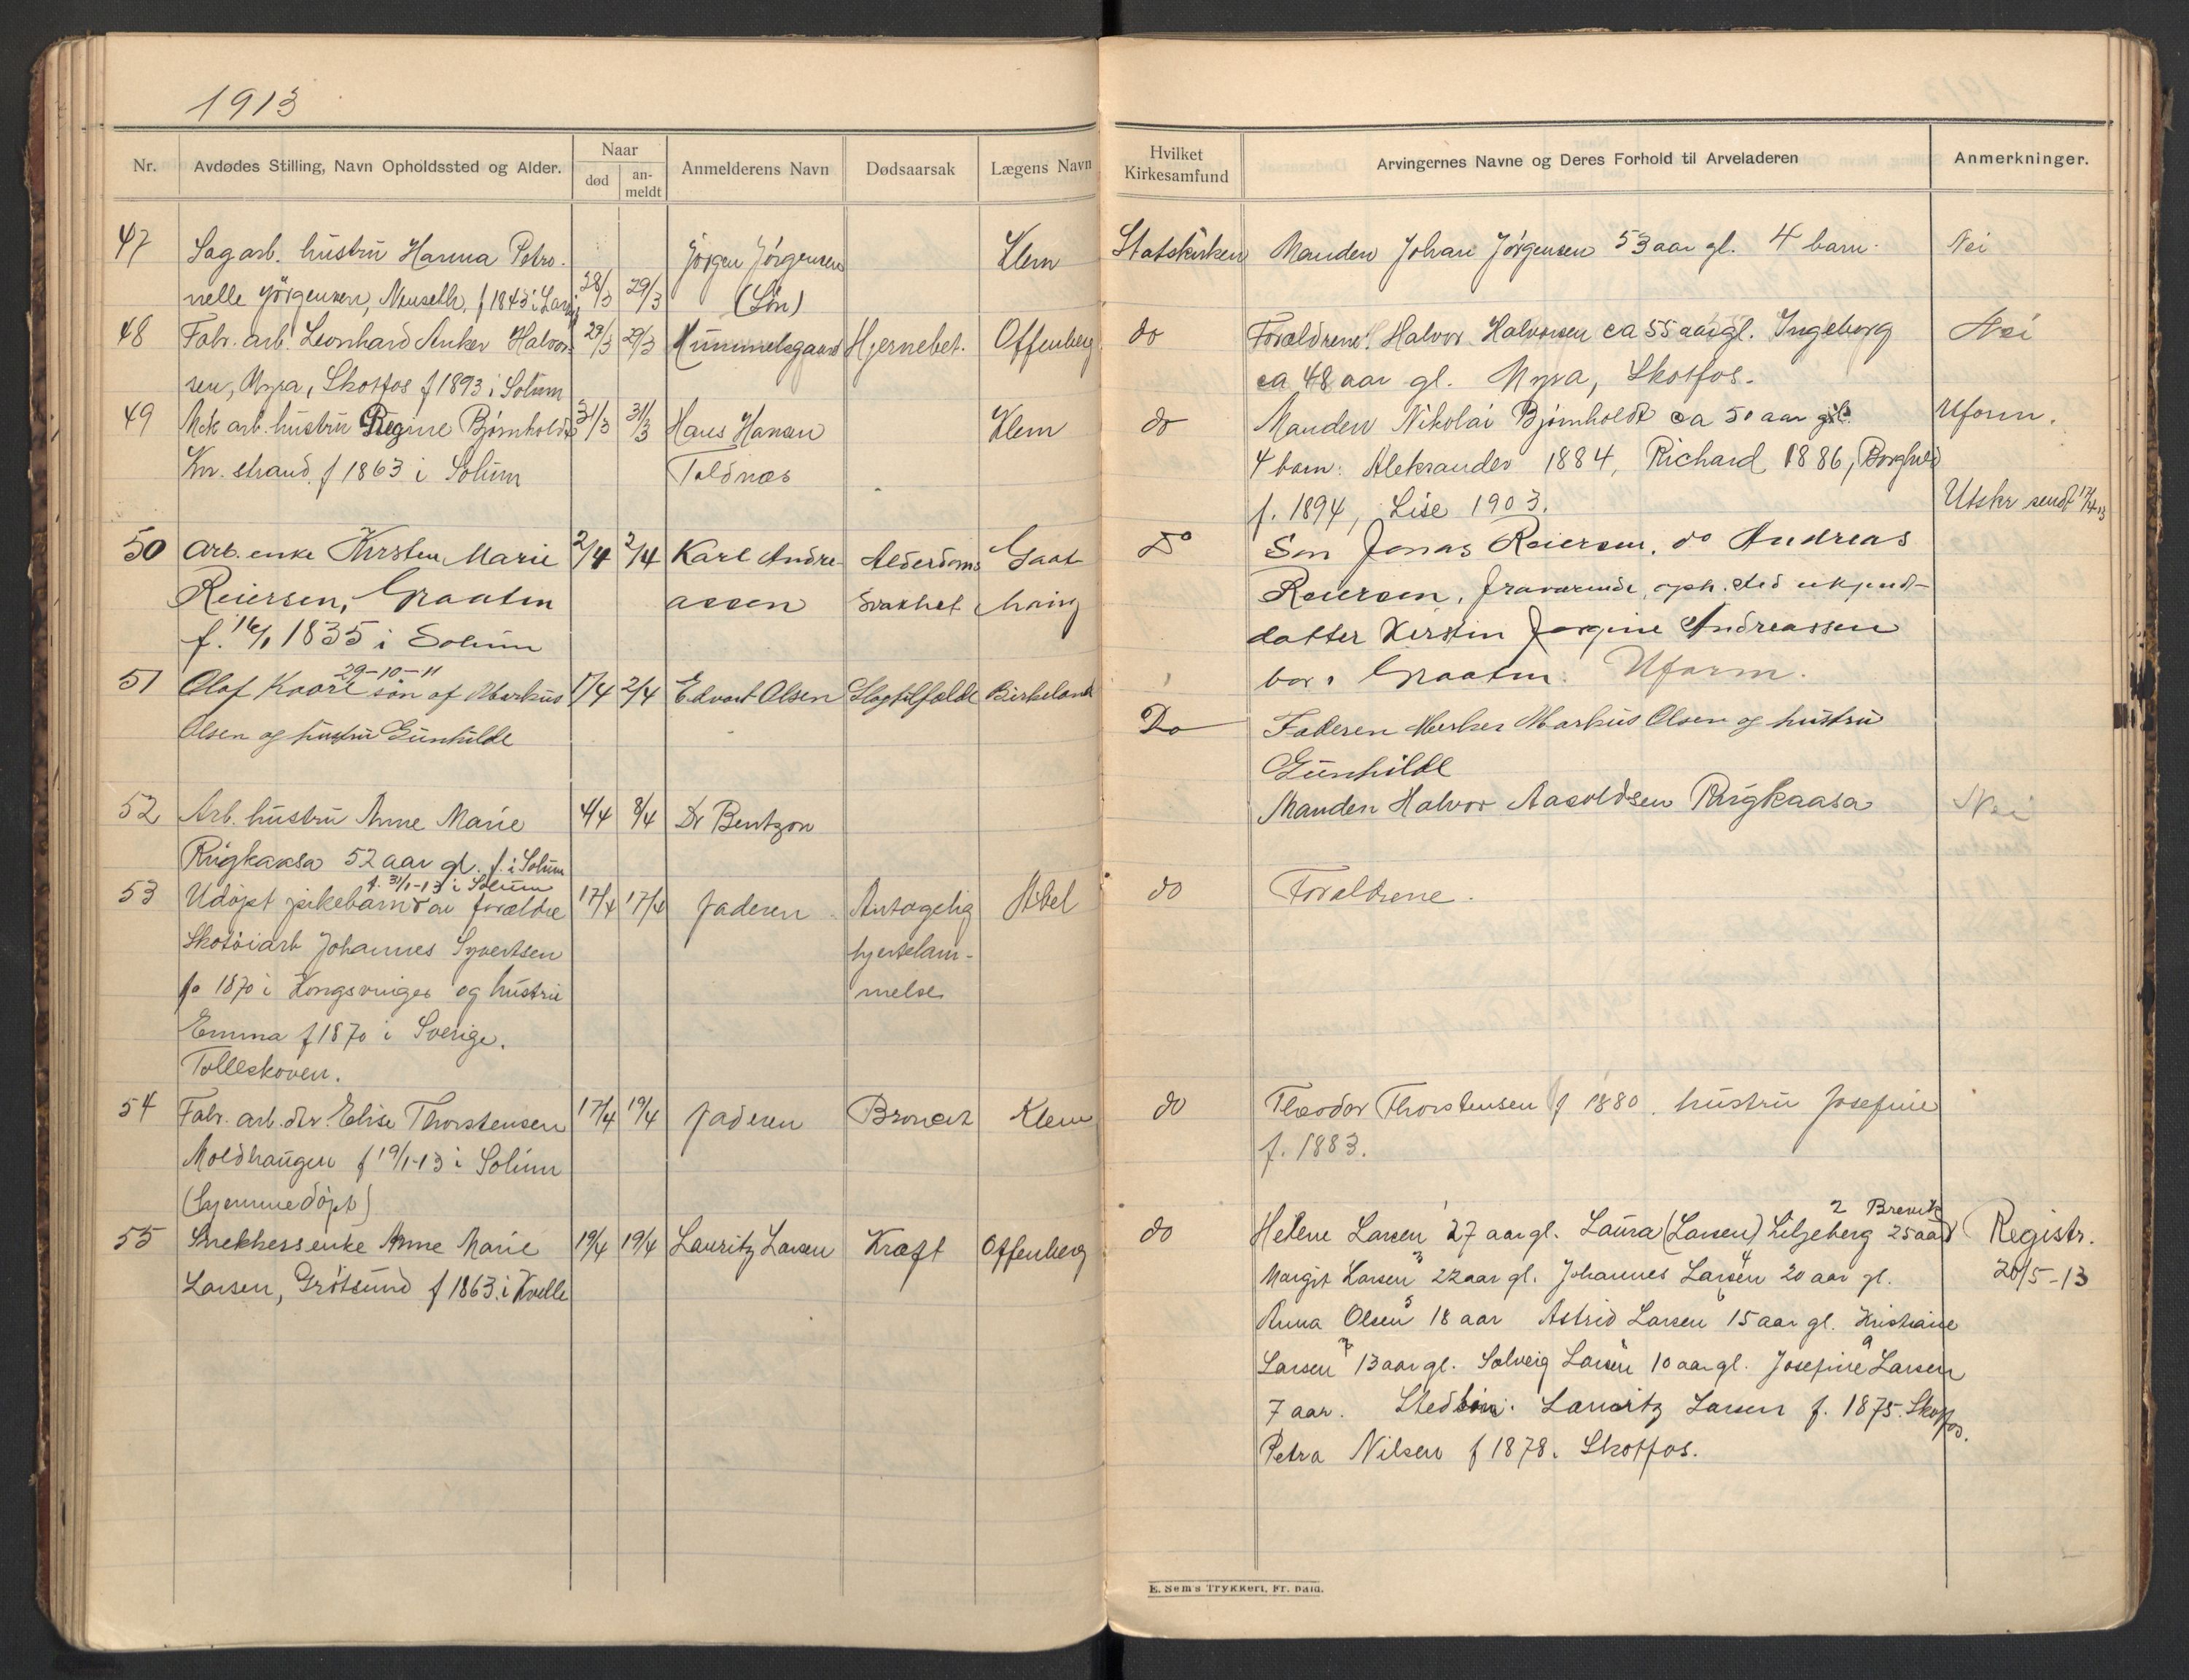 1913
Nr. Avdødes Stilling, Navn Opholdssted og Alder. Naar død an-meldt Anmelderens Navn Dødsaarsak Lægens Navn
Hvilket Kirkesamfund Arvingernes Navne og Deres Forhold til Arveladeren Anmerkninger.
47 Sagarb. hustru Hanna Petro- Jörgen Jörgensen Klem Statskirken Manden Johan Jörgensen 53 aar gl. 4 barn. Nei
nelle Jörgensen, Menseth, f 1843 i 28/3 29/3 (Sön)
48 Fabr. arb. Leonhard Anker Halvor- 29/3 29/3 Hummelsgaard Hjernebet. Offenberg do Forældrene: Halvor Halvorsen ca 55 aar gl. Ingeborg Nei
sen, Myra, Skotfos f 1893 i Solum ca 48 aar gl. Myra, Skotfos.
49 Mek arb. hustru Regine Bjørnholdt 31/3 31/3 Hans Hansen Klem do Manden Nikolai Bjørnholdt ca 50 aar gl. Uform.
Kn. strand f 1863 i Solum Toldnæs 4 barn: Aleksander 1884, Richard 1886, Borghild
f. 1894, Lise 1903. Utskr sendt 17/4 13
50 Arb. enke Kirsten Marie 2/4 2/4 Karl Andre- Alderdoms Gaat- Do Søn Jonas Reiersen, do Andreas
Reiersen, Graaten assen svakhet haug Reiersen, fraværende, oph. sted ukjendt-
f. 16/1 1835 i Solum datter Kirstin Jorgine Andreassen
bor i Graaten. Uform.
29-10-11
51 Olaf Kaare søn af Markus 1/4 2/4 Edvart Olsen Slagtilfælde Birkeland
Olsen og hustru Gunhilde Do Faderen Markus Olsen og hustru
Gunhilde
52 Arb. hustru Anne Marie 4/4 8/4 Dr Bentzon Manden Halvor Aasoldsen Ringkaasa Nei
Ringkaasa 52 aar gl. f. i Solum
f. 31/1-13 i Solum
53 Udöpt pikebarn av forældre 17/4 17/4 Faderen Antagelig Abel do Forældrene.
Skotöiarb Johannes Syvertsen hjertelam-
fo 1870 i Kongsvinger og hustru melse
Emma f 1870 i Sverige.
Tolleskoven.
54 Fabr. arb. dtr. Elise Thorstensen 17/4 19/4 Faderen Broncit Klem do Theodor Thorstensen f 1880. hustru Josefine
Moldhaugen f 19/1-13 i Solum f. 1883.
(hjemmedöpt)
2 Brevik
55 Snekkers enke Anne Marie 19/4 19/4 Lauritz Larsen Kræft Offenberg do Helene Larsen 1 27 aar gl. Laura (Larsen) Liljeberg 25 aar Registr.
Larsen, Grötsund f 1863 i Kvelle Margit Larsen 3 22 aar gl. Johannes Larsen 4 20 aar gl. 20/5-13
Anna Olsen 5 18 aar Astrid Larsen 6 15 aar gl. Kristiane
Larsen 7 13 aar gl. Solveig Larsen 10 aar gl. Josefine 9 Larsen
7 aar. Stedbörn: Lauritz Larsen f. 1875. Skotfos.
Petra Nilsen f 1878. Skotfos.
E. Sem's Trykkeri, Fr. hald.